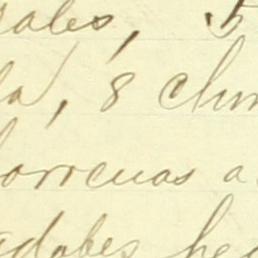 ales, 5
la, 8 chim
orrcuas a
adobes he